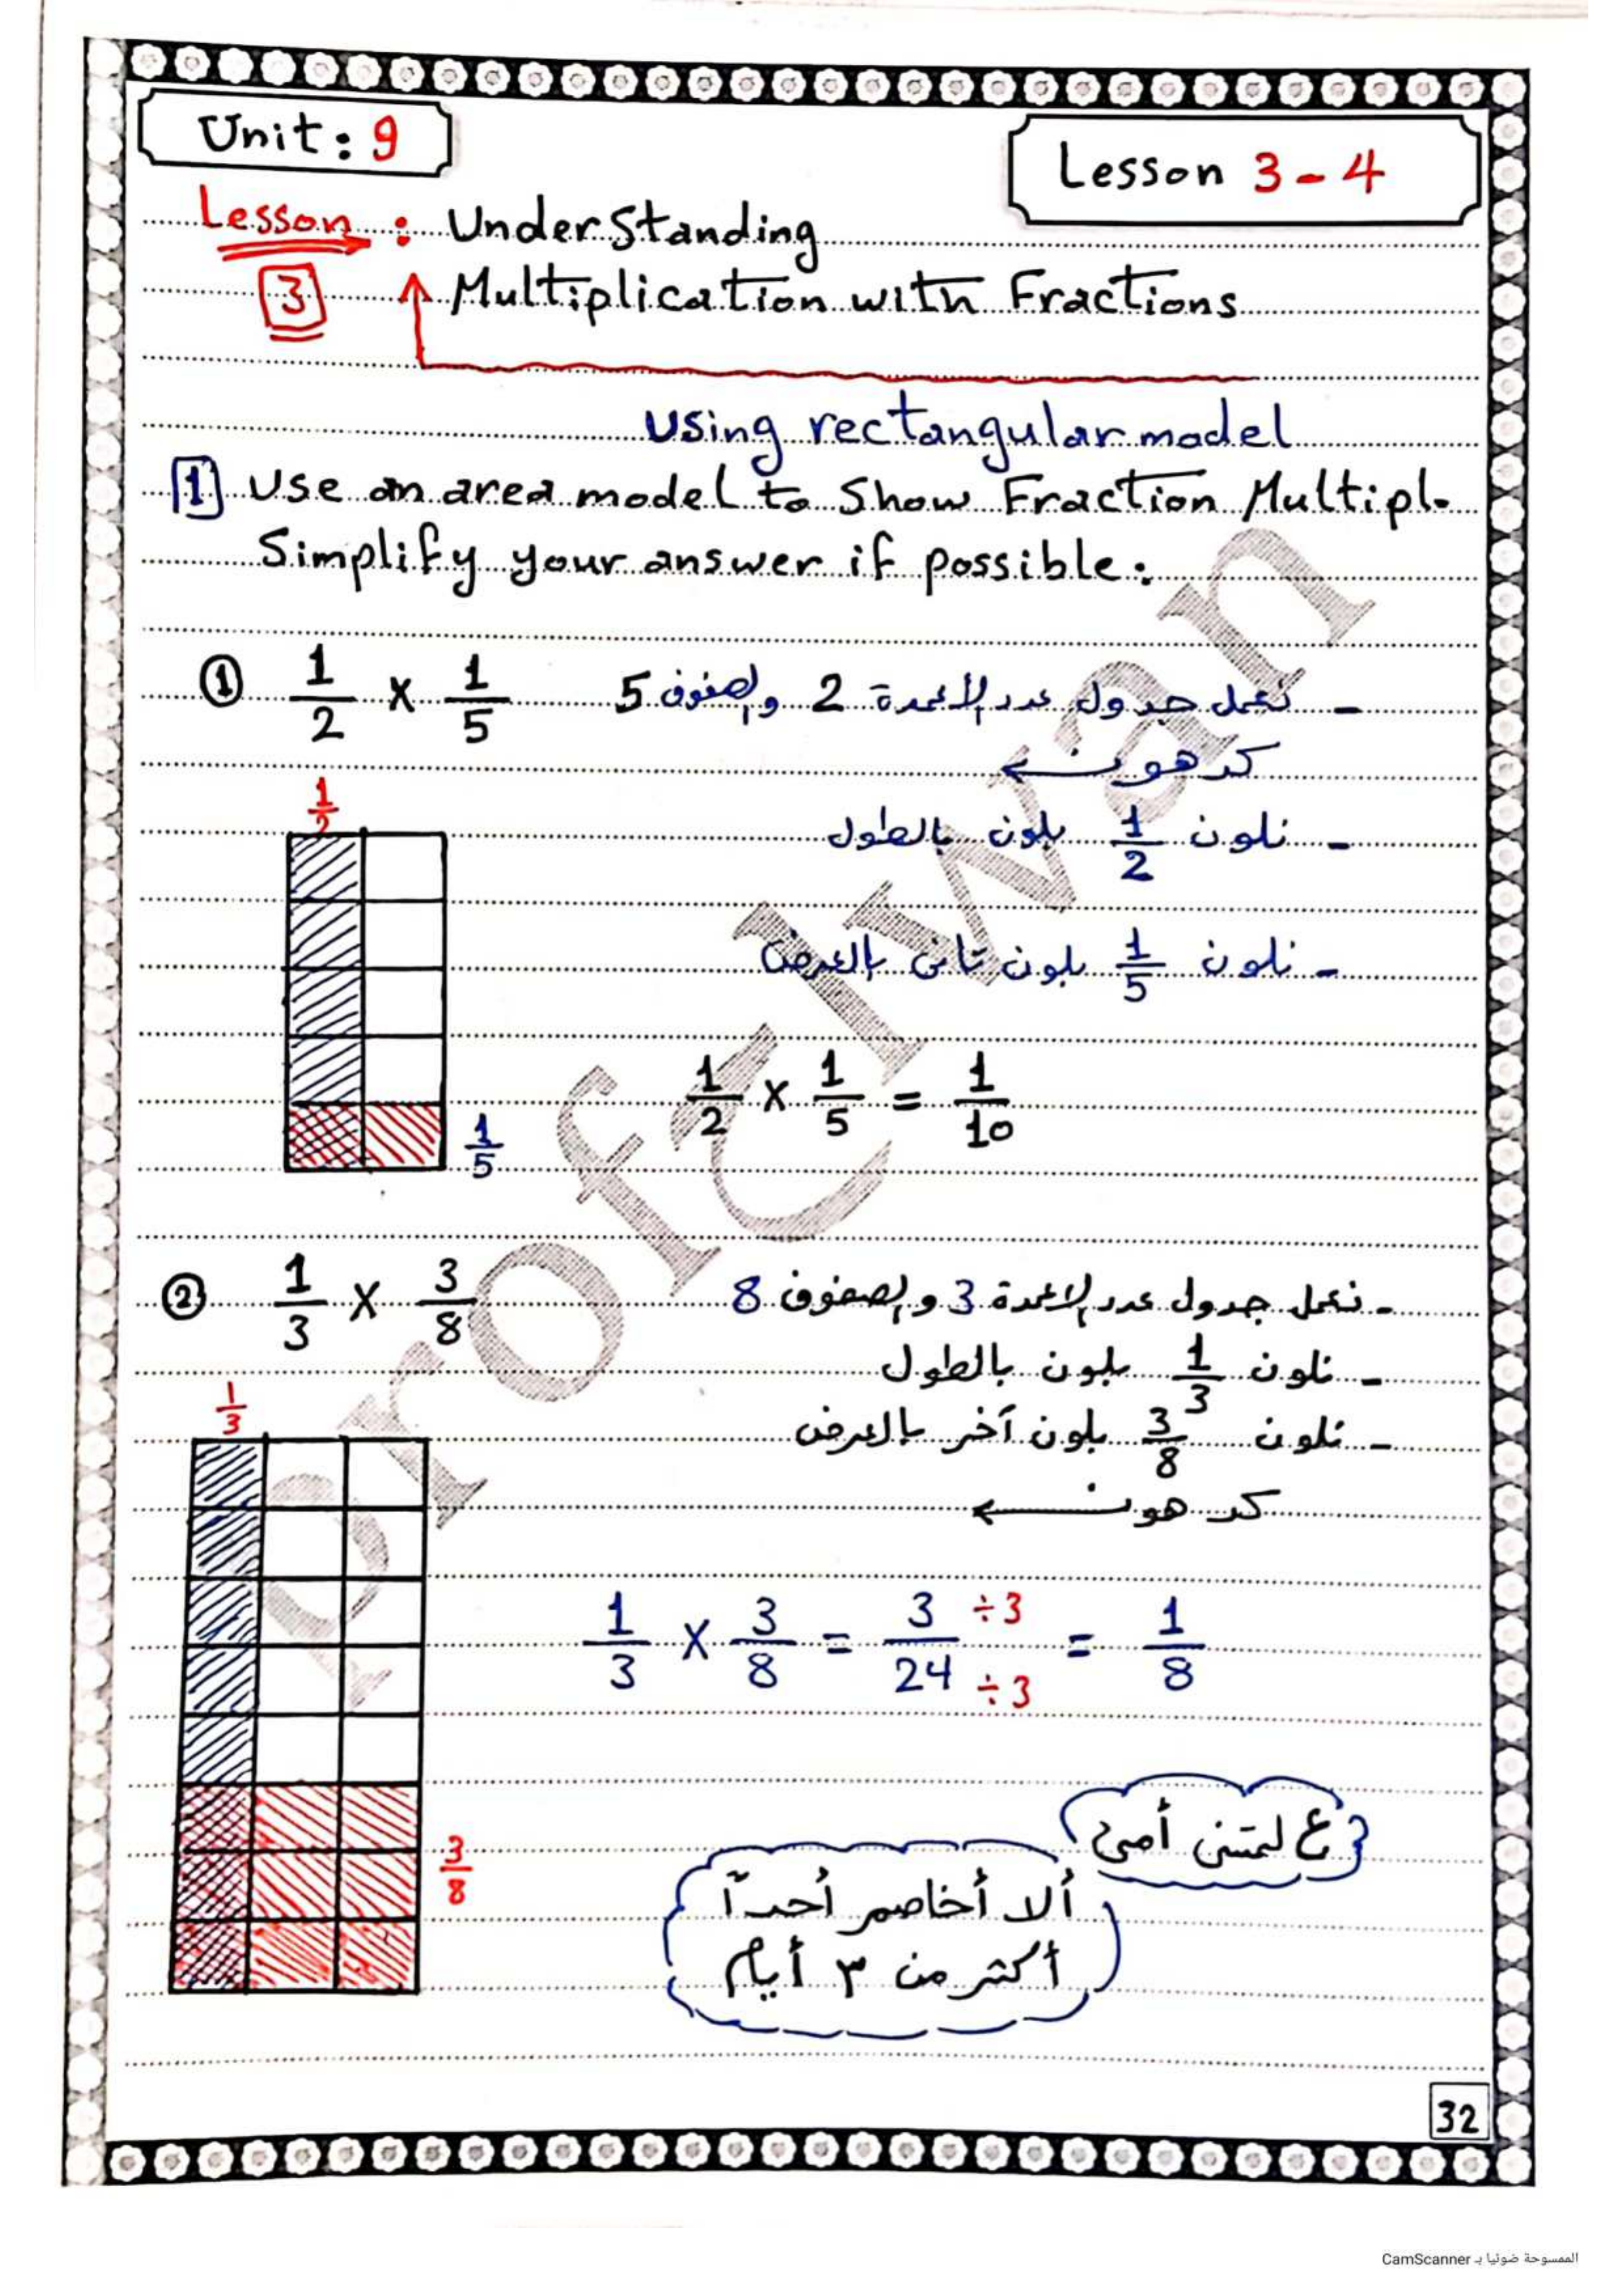 Unit: 9
Lesson 3 - 4
Lesson : Understanding
3 Multiplication with Fractions
Using rectangular model
1 Use an area model to Show Fraction Multipl.
Simplify your answer if possible:
① 1/2 × 1/5 - نعمل جدول عدد الأعمدة 2 والصفوف 5
كدهون ←
1/2
- نلون 1/2 بلون بالطول
- نلون 1/5 بلون تانى بالعرض
1/2 × 1/5 = 1/10
1/5
② 1/3 × 3/8 - نعمل جدول عدد الاعمدة 3 والصفوف 8
- نلون 1/3 بلون بالطول
1/3
- نلون 3/8 بلون آخر بالعرض
كدهون ←
1/3 × 3/8 = 3 ÷3/24 ÷3 = 1/8
ع لمتنى أمى
3/8
ألا أخاصم أحداً
أكثر من ٣ أيام
32
Prof Elwan
الممسوحة ضوئيا بـ CamScanner